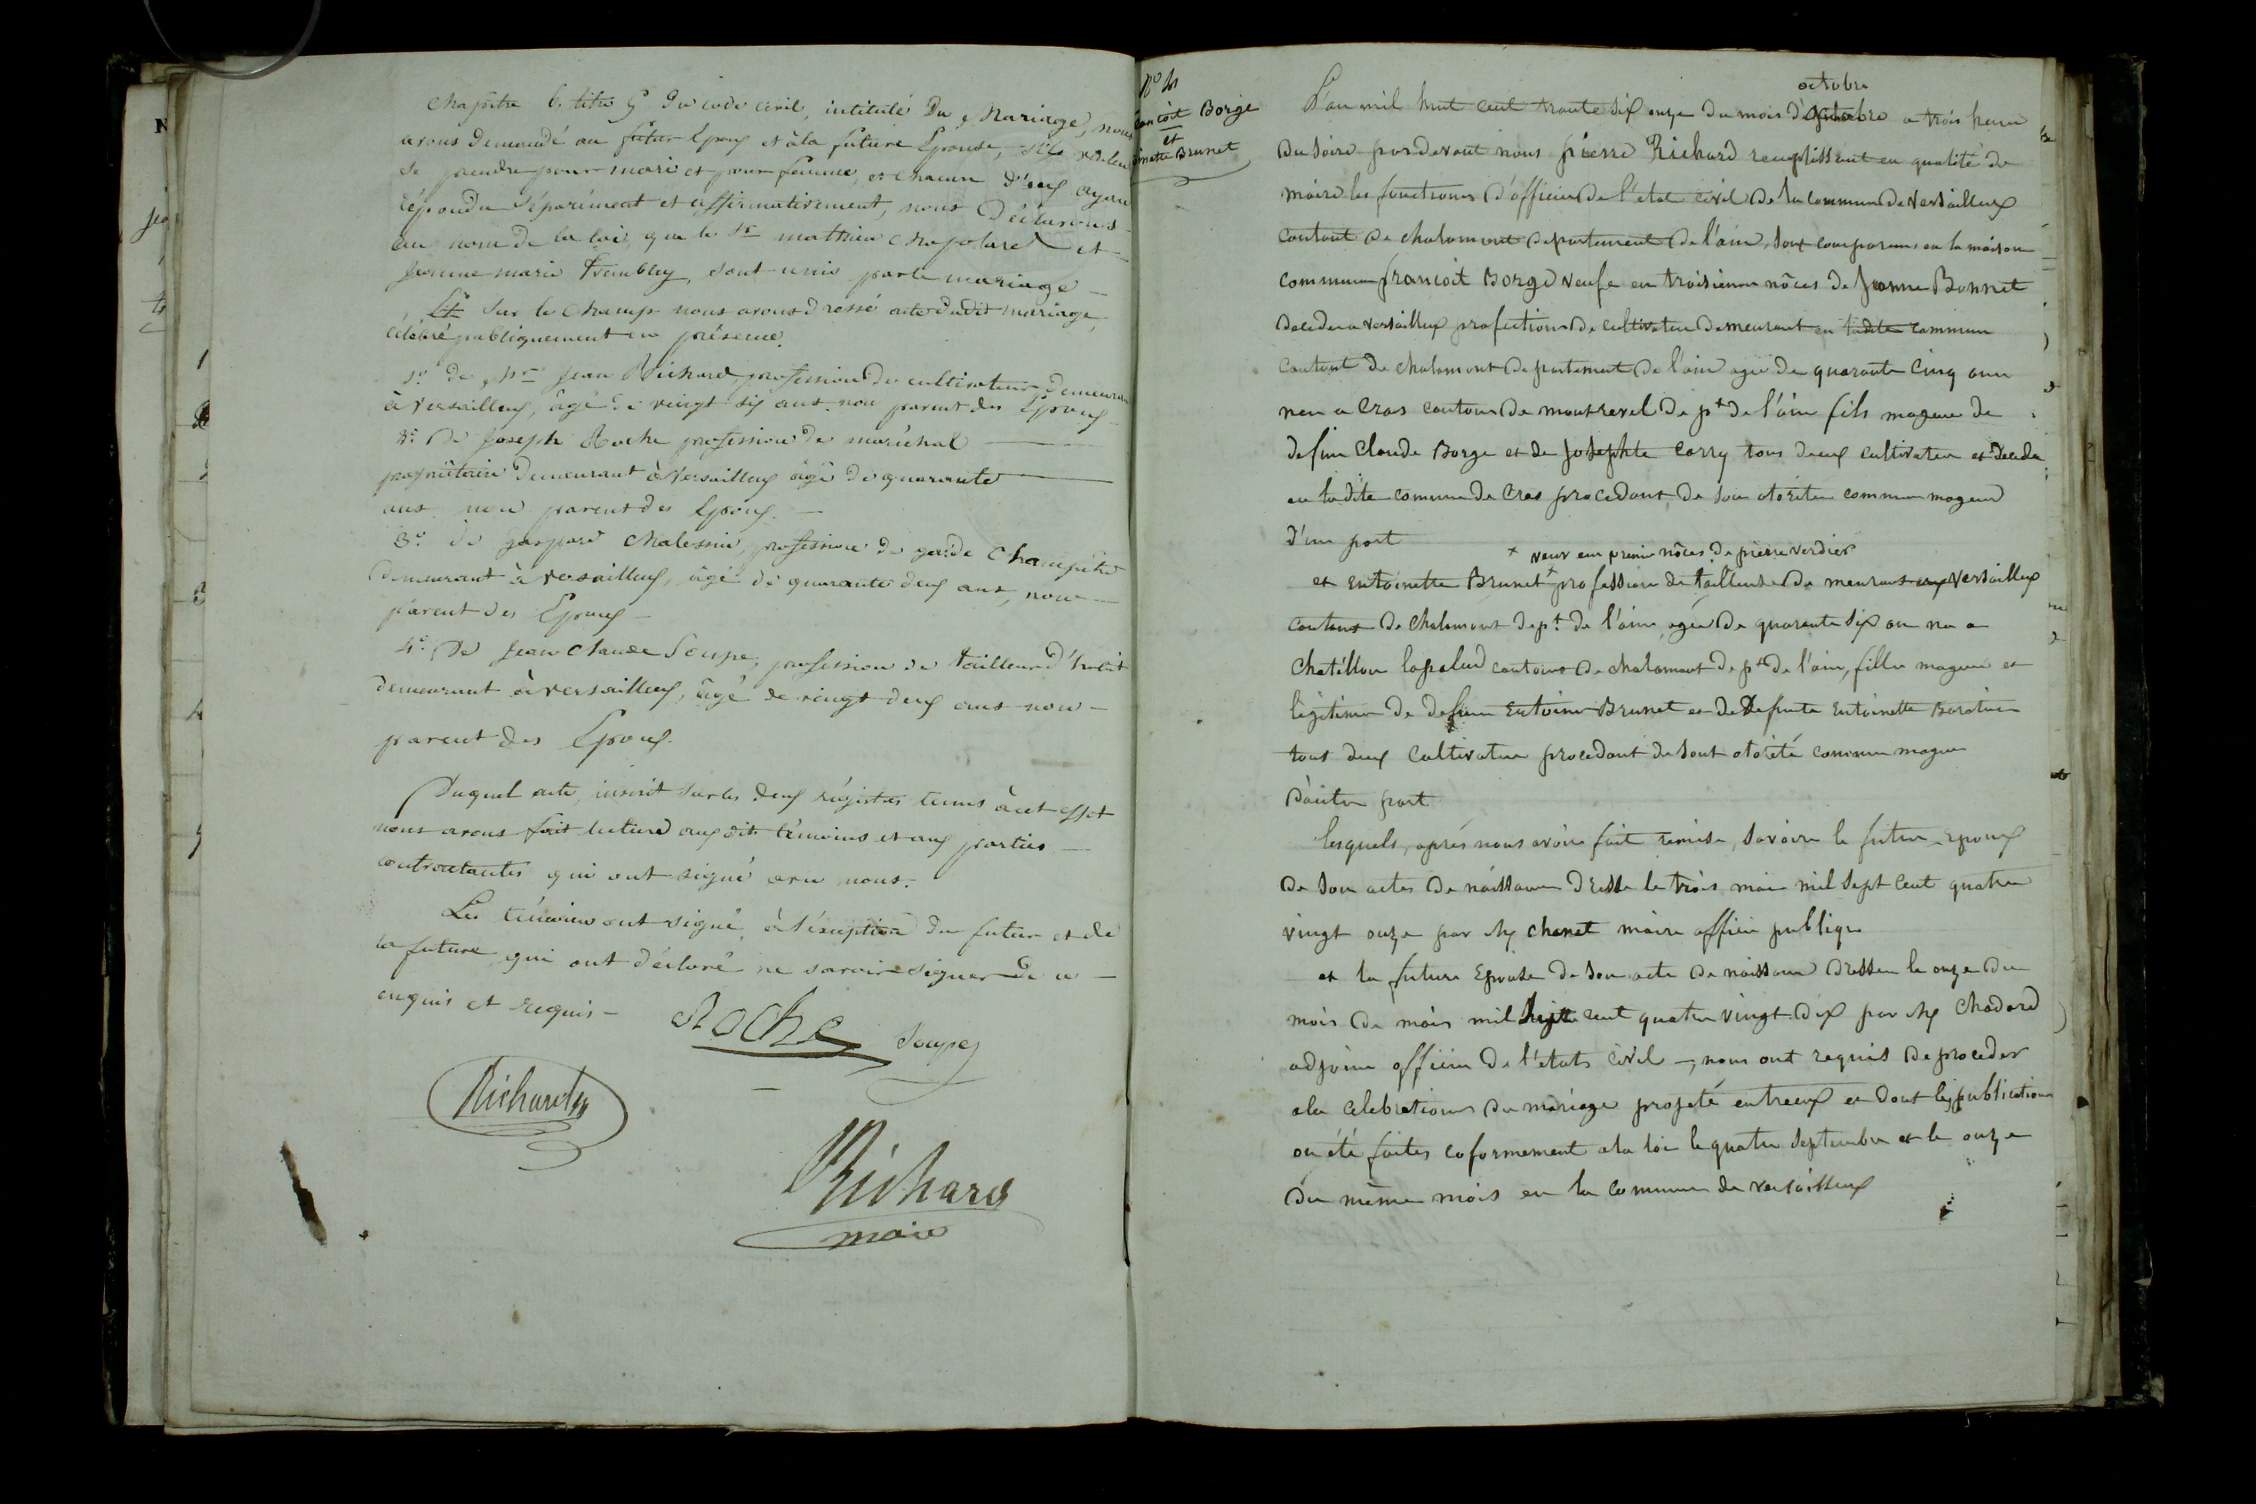 chapitre 6. titre 5 du code civil, intitulé Du Mariage, nous
avons demandé au futur Epoux et à la future Epouse, s'ils veulen
se prendre pour mari et pour femme, et chacun d'eux ayan
répondu séparément et affirmativement, nous Déclarons
au nom de la loi, que le Sr mathieu et
jeanne marie Trembley, sont unis par le mariage
Et sur le champ nous avons dressé acte dudit mariage,
célébré publiquement en présence.
1º de Mr jean Richard, profession de cultivateur demeuran
à Versailleux, âgé de vingt six ans. non parent des Epoux
2º De Joseph Roche profession de maréchal
propriétaire demeurant à Versailleux âgé de quarante
ans non parent des Epoux.
3º de gaspard Malessin, profession de garde Champêtre
Demeurant à versailleux, âgé de quarante deux ans, non
parent des Epoux
4º De jean Claude Soupe, profession de tailleur d'habit
demeurant à versailleux, âgé de vingt deux ans non
parent des Epoux.
Duquel acte, inscrit sur les deux régistres tenus à cet effet
nous avons fait lecture auxdits témoins et aux parties
contractantes qui ont signé avec nous.
Les témoins ont signé, à l'éxception du futur et de
la future qui ont déclaré ne savoir signer de ce
enquis et requis
Roche Soupe
Richard
Richard
maire
Nº
ancoit Borge
et
oinette Brunet
octobre
L'an mil huit cent trante six onze du mois d' a trois heure
du soire par devant nous pierre Richard remplissant en qualité de
maire les fonctions d'officier de l'etat civil de la commune de versailleux
cantont de chalamont departement de l'ain, sont comparus en la maison
commune francoit Borge veufe en troisieme nôces de Jeanne Bonnet
decedée a versailleux profection de cultivateur demeurant en ladite commune
cantont de chalamont departement de l'ain agée de quarante cinq ans
nen a Cras canton de montrevel dept de l'ain fils mageur de
defun Claude Borge et de Josephte Carry tous deux cultivateur et decedu
en ladite commune de Cras procedant de son otoritée comme mageur
d'une part
x veuve en premie nôces de pierre verdier
et entoinette Brunet x profession de tailleuse demeurant versailleux
cantont de chalamont dept de l'ain agée de quarante six an né a
chatillon lapalud cantont de chalamont dept de l'ain, fille mageure et
légitime de defun entoine Brunet et de defunte entoinette
tous deux cultivateur procedant de sont otoritée comme mageur
d'autre part
lesquels, aprés nous avoire fait remise, savoire le futur epoux
de son actes de naissance dressé le trois mai mil sept cent quatre
vingt onze par Mr chanet maire officier publique
et la future Epouse de son acte de naissance dressée le onze du
mois de mais mil cent quatre vingt dix par Mr Chadard
adjoint officier de l'etats civil, nous ont requis de proceder
a la celebrations du mariage projeté entreux et dont les publications
on été faites coformement a la loi le quatre septembre et le onze
du même mois en la commune de versailleux